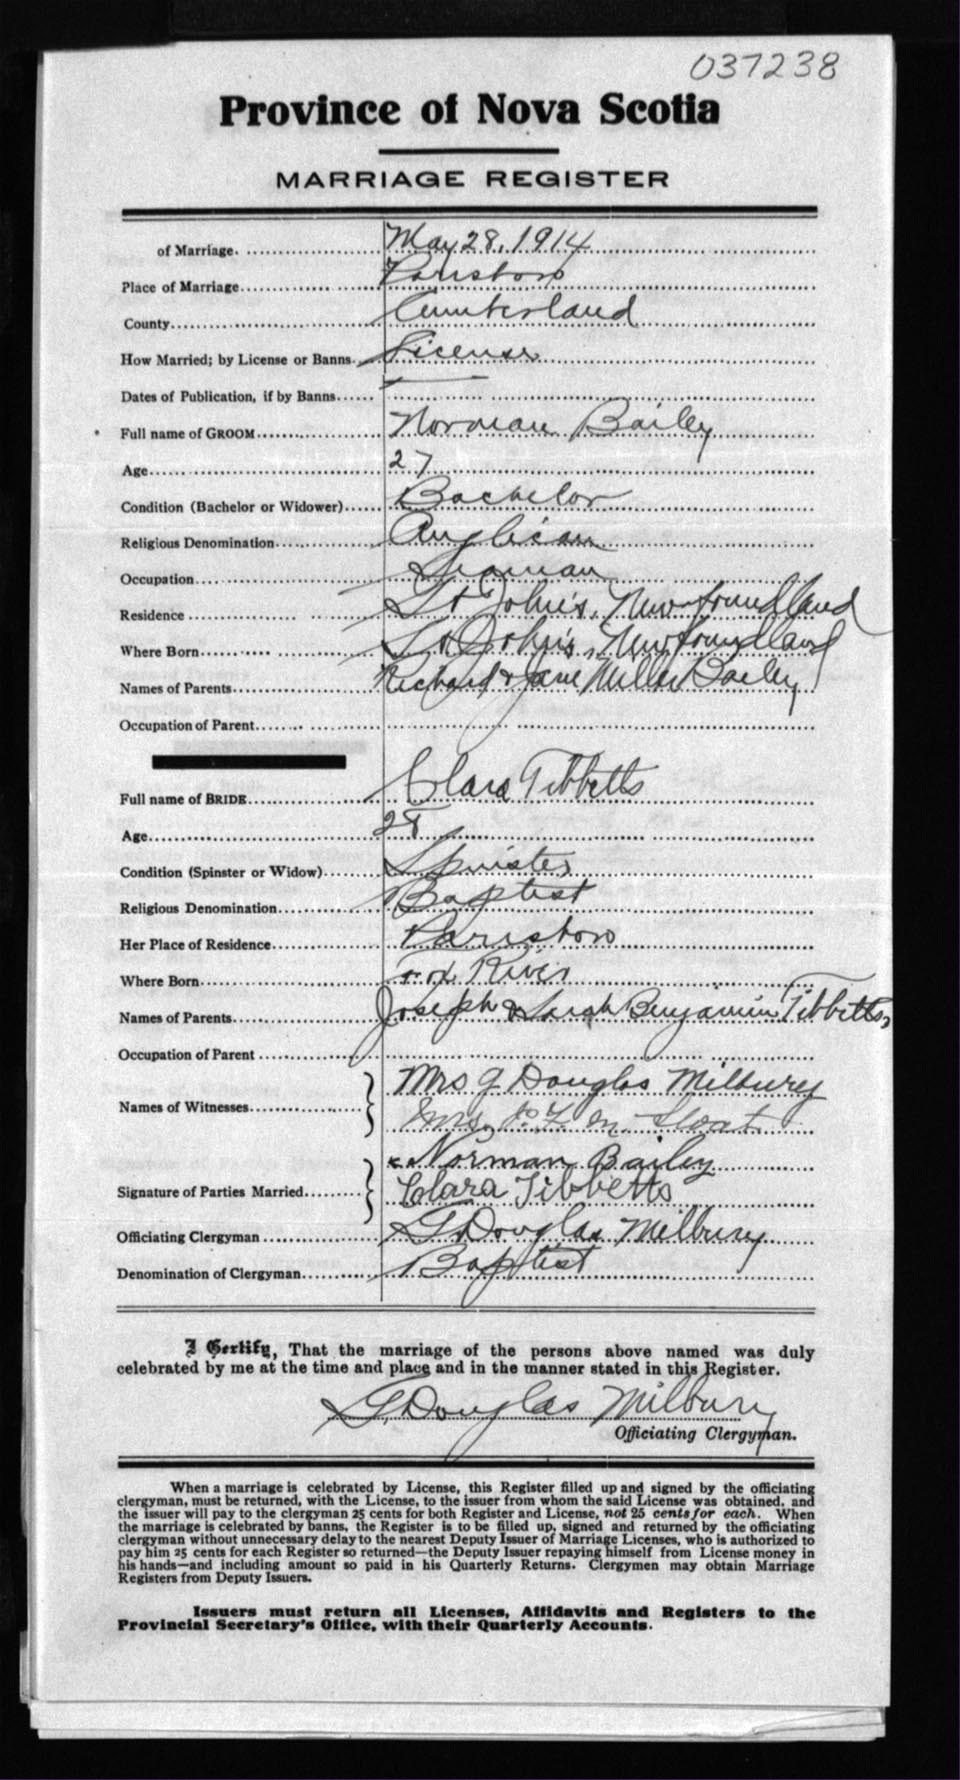 037238
Province of Nova Scotia
MARRIAGE REGISTER
of Marriage. May 28, 1914
Place of Marriage Parrsboro
County Cumberland
How Married; by License or Banns. License
Dates of Publication, if by Banns —
Full name of GROOM Norman Bailey
Age 27
Condition (Bachelor or Widower) Bachelor
Religious Denomination Anglican
Occupation Seaman
Residence St John's, Newfoundland
Where Born St John's, Newfoundland
Names of Parents Richard & Jane Miller Bailey
Occupation of Parent
Full name of BRIDE Clara Tibbetts
Age 28
Condition (Spinster or Widow) Spinster
Religious Denomination Baptist
Her Place of Residence Parrsboro
Where Born Fox River
Names of Parents Joseph & Sarah Benjamin Tibbetts
Occupation of Parent
Names of Witnesses Mrs G Douglas Milbury
Mrs. M. Sloat
Signature of Parties Married Norman Bailey
Clara Tibbetts
Officiating Clergyman G. Douglas Milbury
Denomination of Clergyman Baptist
I Certify, That the marriage of the persons above named was duly
celebrated by me at the time and place and in the manner stated in this Register.
G. Douglas Milbury
Officiating Clergyman.
When a marriage is celebrated by License, this Register filled up and signed by the officiating
clergyman, must be returned, with the License, to the issuer from whom the said License was obtained, and
the issuer will pay to the clergyman 25 cents for both Register and License, not 25 cents for each. When
the marriage is celebrated by banns, the Register is to be filled up, signed and returned by the officiating
clergyman without unnecessary delay to the nearest Deputy Issuer of Marriage Licenses, who is authorized to
pay him 25 cents for each Register so returned—the Deputy Issuer repaying himself from License money in
his hands—and including amount so paid in his Quarterly Returns. Clergymen may obtain Marriage
Registers from Deputy Issuers.
Issuers must return all Licenses, Affidavits and Registers to the
Provincial Secretary's Office, with their Quarterly Accounts.